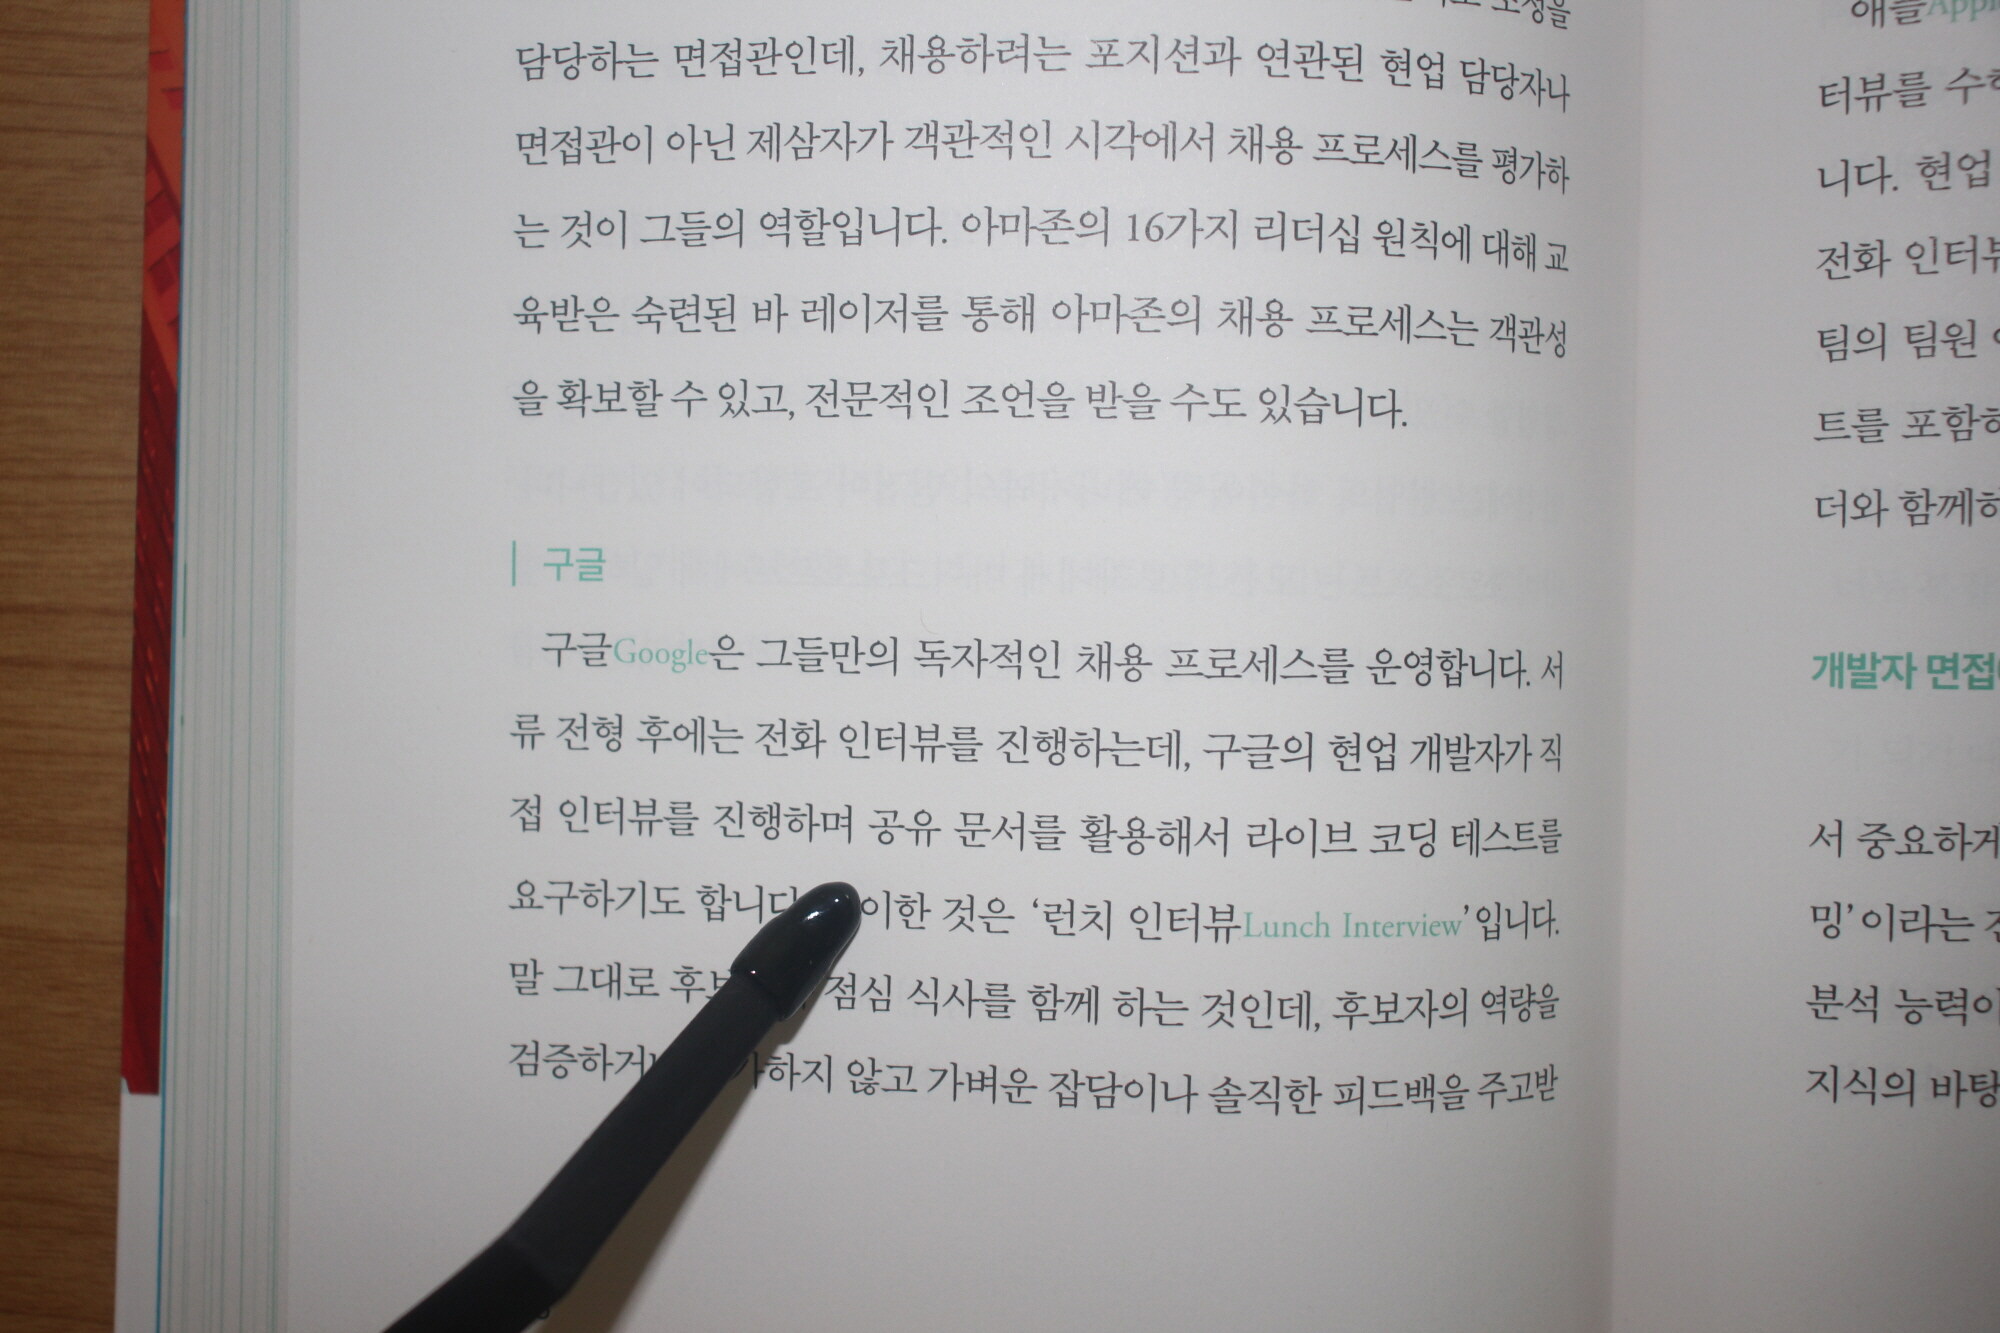 담당하는 면접관인데, 채용하려는 포지션과 연관된 현업 담당자나
면접관이 아닌 제삼자가 객관적인 시각에서 채용 프로세스를 평가하
는 것이 그들의 역할입니다. 아마존의 16가지 리더십 원칙에 대해 교
육받은 숙련된 바 레이저를 통해 아마존의 채용 프로세스는 객관성
을 확보할 수 있고, 전문적인 조언을 받을 수도 있습니다.
구글
구글Google은 그들만의 독자적인 채용 프로세스를 운영합니다. 서
류 전형 후에는 전화 인터뷰를 진행하는데, 구글의 현업 개발자가 직
접 인터뷰를 진행하며 공유 문서를 활용해서 라이브 코딩 테스트를
요구하기도 합니다 이한 것은 ‘런치 인터뷰Lunch Interview’입니다.
말 그대로 점심 식사를 함께 하는 것인데, 후보자의 역량을
검증하거 하지 않고 가벼운 잡담이나 솔직한 피드백을 주고받
애플Apple
터뷰를
니다. 현업
전화
팀의 팀원
트를
더와
개발자
서 중요하게
밍’이라는
분석
지식의